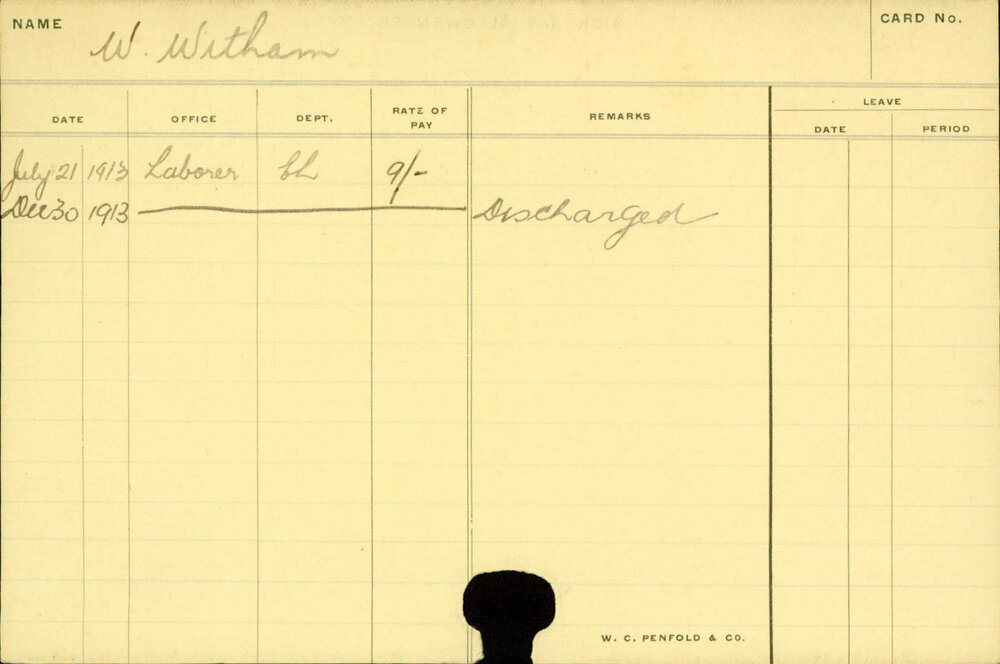 NAME W. Witham CARD No.
LEAVE
DATE OFFICE DEPT. RATE OF PAY REMARKS DATE PERIOD
July 21 1913 Laborer 9/-
Dec 30 1913 Discharged
W. C. PENFOLD & CO.